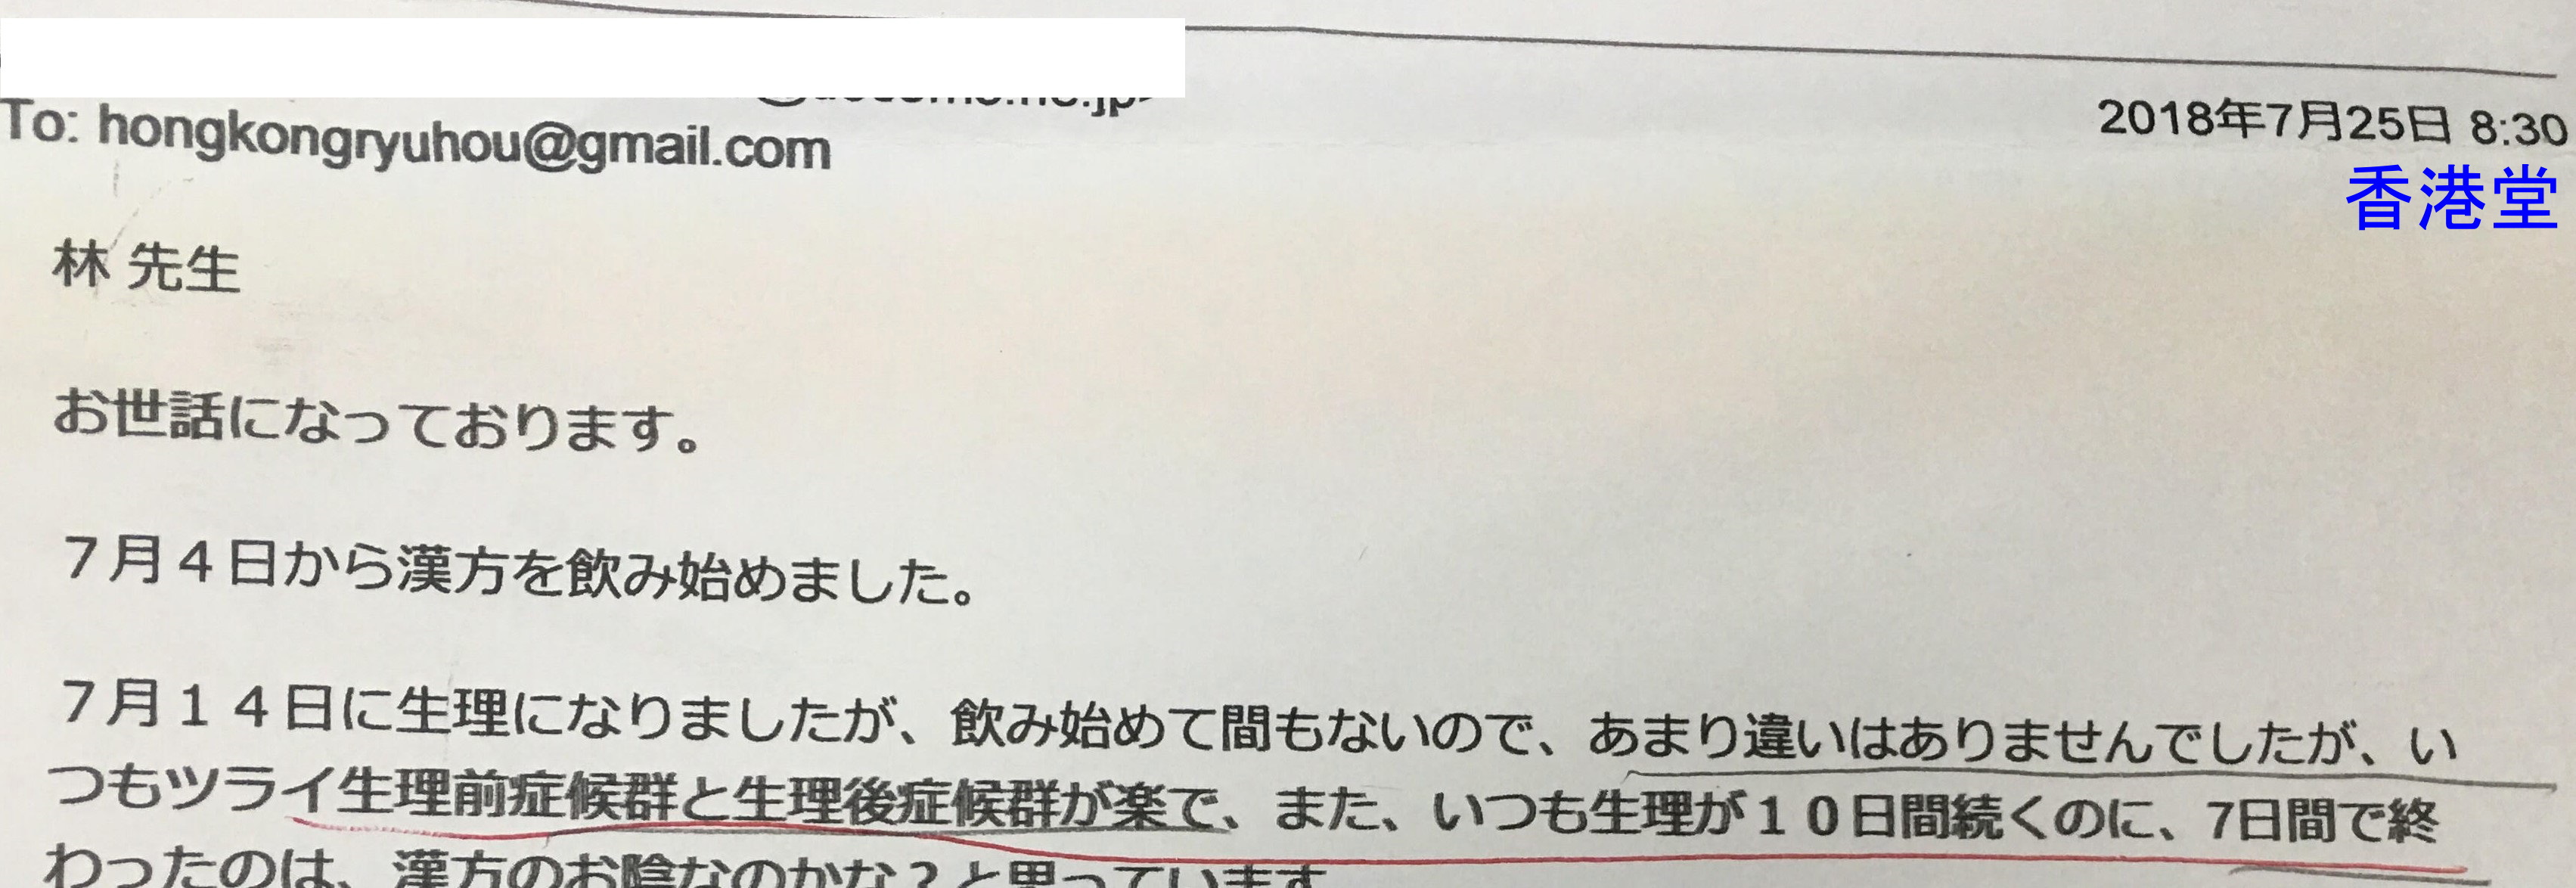 To: hongkongryuhou@gmail.com
2018年7月25日 8:30
香港堂
林 先生
お世話になっております。
７月４日から漢方を飲み始めました。
７月１４日に生理になりましたが、飲み始めて間もないので、あまり違いはありませんでしたが、い
つもツライ生理前症候群と生理後症候群が楽で、また、いつも生理が１０日間続くのに、7日間で終
わったのは、漢方のお陰なのかな？と思っています